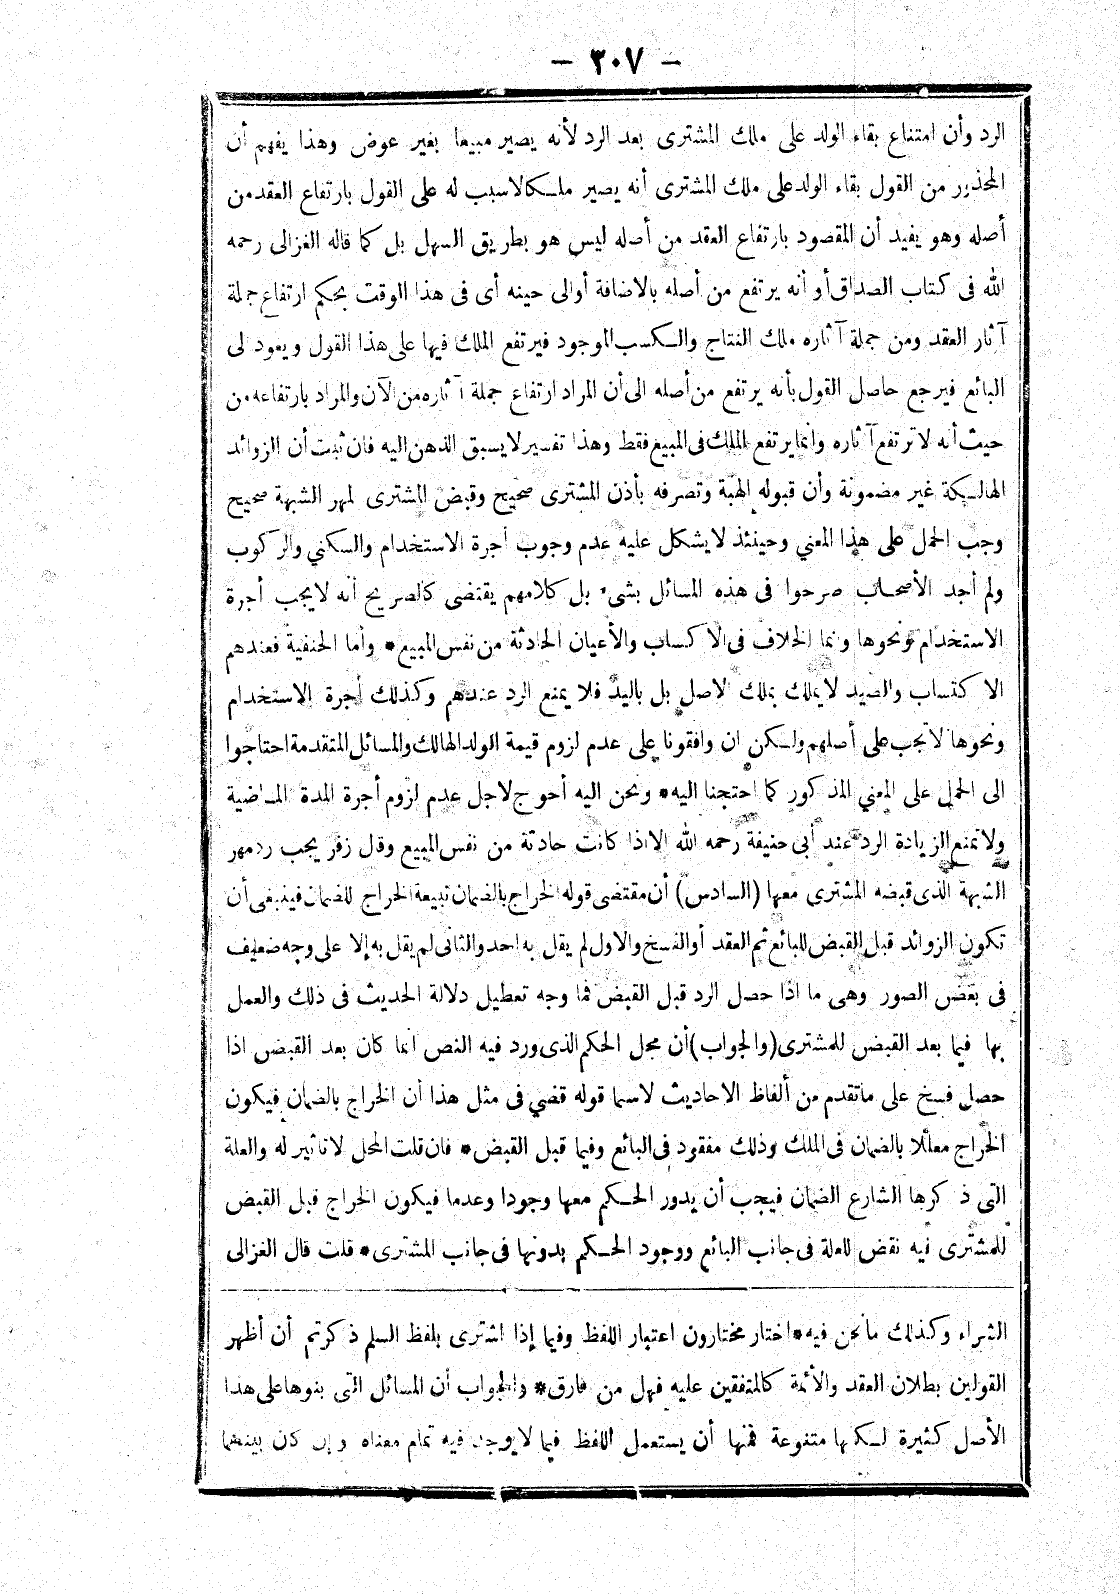 – ٣٠٧ –
الرد وأن امتناع بقاء الولد على ملك المشترى بعد الرد لأنه يصير مبيعا بغير عوض وهذا يفهم أن
المحذور من القول بقاء الولد على ملك المشترى أنه يصير ملكا لا سبب له على القول بارتفاع العقد من
أصله وهو يفيد أن المقصود بارتفاع العقد من أصله ليس هو بطريق السهل بل كما قاله الغزالى رحمه
الله فى كتاب الصداق أو أنه يرتفع من أصله بالاضافة أوالى حينه أى فى هذا الوقت بحكم ارتفاع جملة
آثار العقد ومن جملة آثاره ملك النتاج والكسب الموجود فيرتفع الملك فيها على هذا القول ويعود الى
البائع فيرجع حاصل القول بأنه يرتفع من أصله الى أن المراد ارتفاع جملة آثاره من الآن والمراد بارتفاعه من
حيث أنه لا ترتفع آثاره وانما يرتفع الملك فى المبيع فقط وهذا تفسير لا يسبق الذهن اليه فان ثبت أن الزوائد
الهالكة غير مضمونة وأن قبوله الهبة وتصرفه بأذن المشترى صحيح وقبض المشترى لمهر الشبهة صحيح
وجب الحمل على هذا المعني وحينئذ لا يشكل عليه عدم وجوب أجرة الاستخدام والسكني والركوب
ولم أجد الأصحاب صرحوا فى هذه المسائل بشىء بل كلامهم يقتضى كالصريح أنه لا يجب أجرة
الاستخدام ونحوها وانما الخلاف فى الاكساب والأعيان الحادثة من نفس المبيع * وأما الحنفية فعندهم
الاكتساب والصيد لا يملك بملك الاصل بل باليد فلا يمنع الرد عندهم وكذلك أجرة الاستخدام
ونحوها لا تجب على أصلهم ولكن ان وافقونا على عدم لزوم قيمة الولد الهالك والمسائل المتقدمة احتاجوا
الى الحمل على المعني المذكور كما احتجنا اليه * ونحن اليه أحوج لاجل عدم لزوم أجرة المدة الماضية
ولا تمنع الزيادة الرد عند أبى حنيفة رحمه الله الا اذا كانت حادثة من نفس المبيع وقال زفر يجب رد مهر
الشبهة الذى قبضه المشترى معها (السادس) أن مقتضى قوله الخراج بالضمان تبيعة الخراج للضمان فينبغى أن
تكون الزوائد قبل القبض للبائع ثم العقد أو الفسخ والاول لم يقل به احد والثانى لم يقل به إلا على وجه ضعيف
فى بعض الصور وهى ما اذا حصل الرد قبل القبض فما وجه تعطيل دلالة الحديث فى ذلك والعمل
بها فيما بعد القبض للمشترى (والجواب) أن محل الحكم الذى ورد فيه النص انما كان بعد القبض اذا
حصل فسخ على ما تقدم من ألفاظ الاحاديث لاسيما قوله قضي فى مثل هذا أن الخراج بالضمان فيكون
الخراج معللا بالضمان فى الملك وذلك مفقود فى البائع وفيما قبل القبض * فان قلت المحل لا تأثير له والعلة
التى ذكرها الشارع الضمان فيجب أن يدور الحكم معها وجودا وعدما فيكون الخراج قبل القبض
للمشترى فيه نقض للعلة فى جانب البائع ووجود الحكم بدونها فى جانب المشترى * قلت قال الغزالى
الشراء وكذلك ما نحن فيه * اختار مختارون اعتبار اللفظ وفيما إذا اشترى بلفظ السلم ذكرتم أن أظهر
القولين بطلان العقد والأئمة كالمتفقين عليه فهل من فارق * والجواب أن المسائل التى بنوها على هذا
الأصل كثيرة لكنها متنوعة فمنها أن يستعمل اللفظ فيما لا يوجد فيه تمام معناه وإن كان بينهما